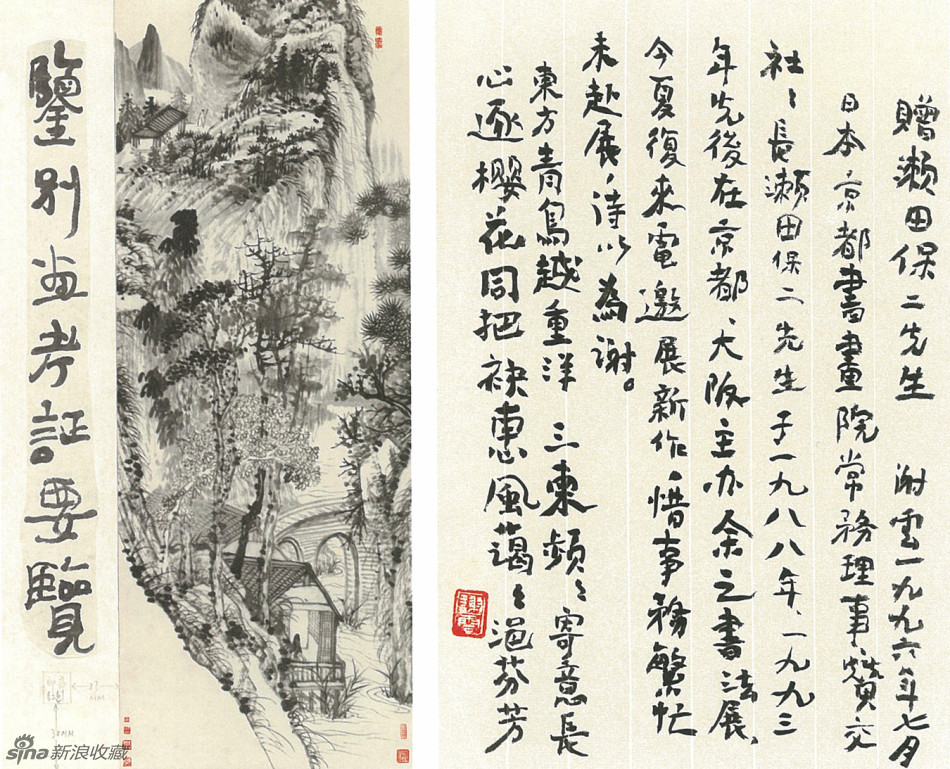 鑒别画考証要覽
贈瀬田保二先生 谢雲一九九六年七月
日本京都書畫院常務理事、交
社〻長瀬田保二先生于一九八八年、一九九三
年先後在京都、大阪主办余之書法展、
今夏復來電邀展新作、惜事務繁忙
未赴展、诗以為謝。
東方青鳥越重洋 三柬頻〻寄意長
心逐櫻花同把袂 惠風蔼〻浥芬芳
謝雲
sina新浪收藏